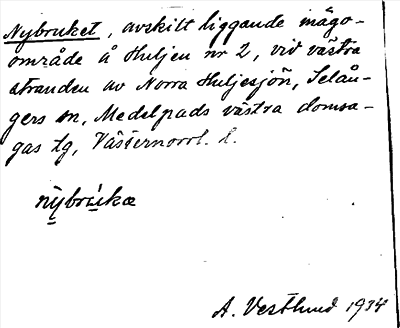 Nybruket, avskilt liggande inägo-
område å Huljen nr 2, vid västra
stranden av Norra Huljesjön, Selån-
gers sn, Medelpads västra domsa-
gas tg, Västernorrl. l.
nybruka
A. Vestlund 1934